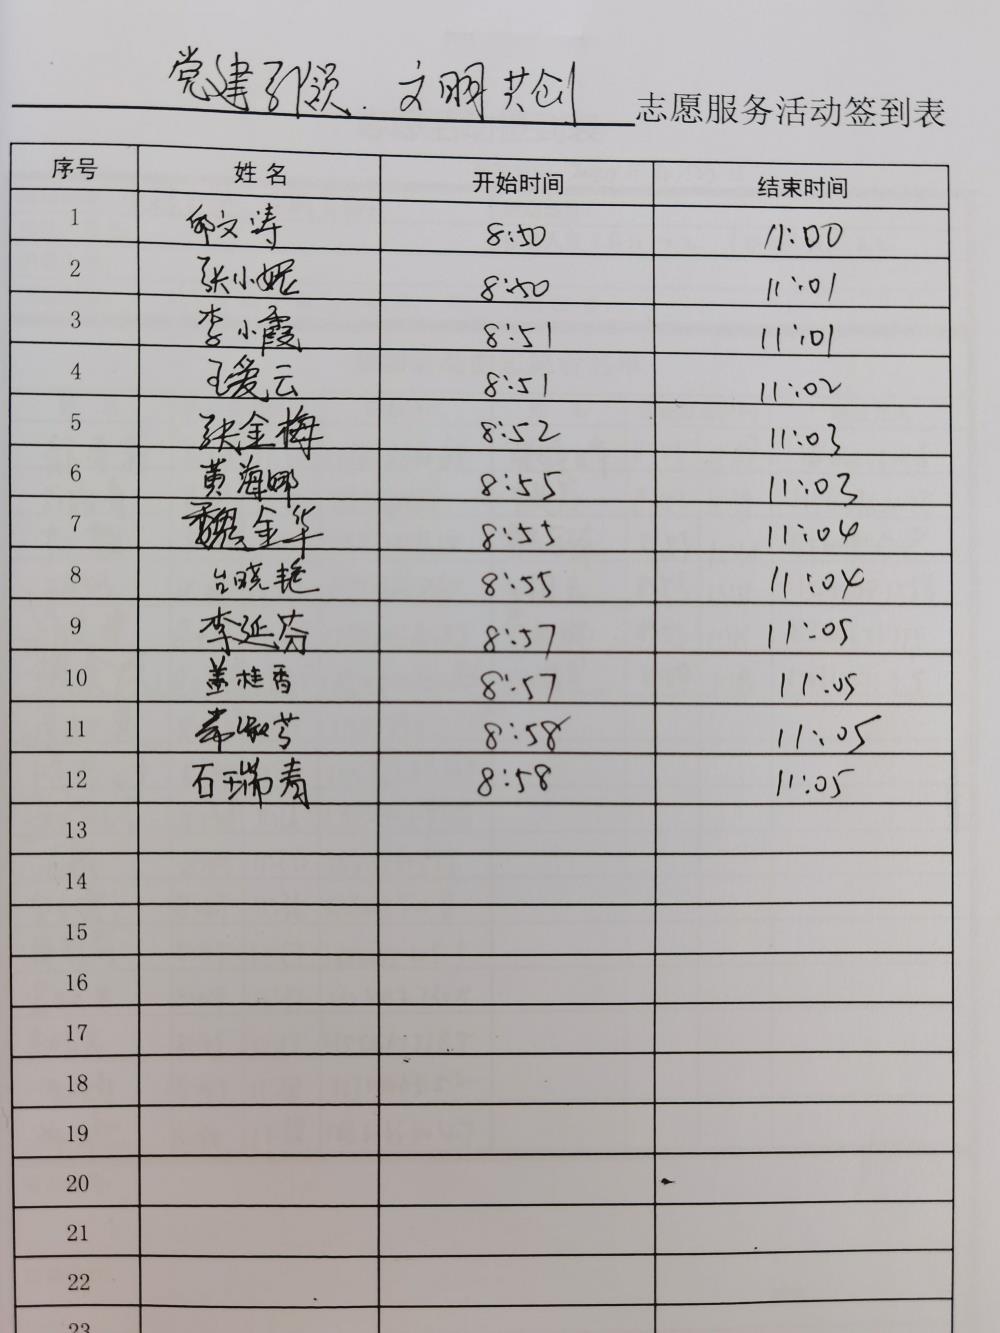 党建引领.文明共创 志愿服务活动签到表
序号 姓名 开始时间 结束时间
1 邹文涛 8:50 11:00
2 张小妮 8:50 11:01
3 李小霞 8:51 11:01
4 王爱云 8:51 11:02
5 张金梅 8:52 11:03
6 黄海娜 8:55 11:03
7 魏金华 8:55 11:04
8 台晓艳 8:55 11:04
9 李延芬 8:57 11:05
10 盖桂香 8:57 11:05
11 8:58 11:05
12 石瑞青 8:58 11:05
13
14
15
16
17
18
19
20
21
22
23